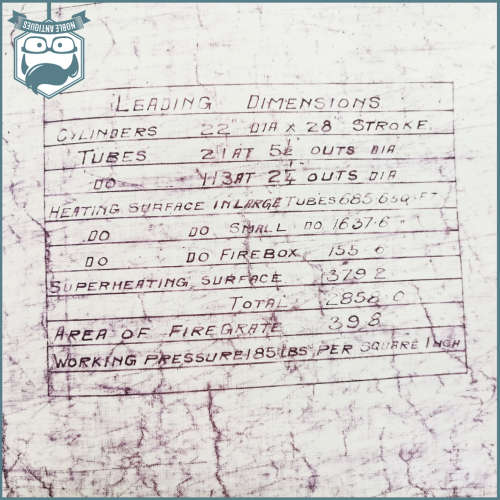 NOBLE ANTIQUES
LEADING DIMENSIONS
CYLINDERS 22" DIA X 28" STROKE
TUBES 21 AT OUTS DIA
DO AT 2¼ OUTS DIA
HEATING SURFACE IN LARGE TUBES 685.6 SQ. FT
DO DO SMALL DO. 1637.6 "
DO DO FIREBOX 155
SUPERHEATING SURFACE 379 2
TOTAL 2856 0
AREA OF FIREGRATE 39.8
WORKING PRESSURE 185 LBS PER SQUARE INCH